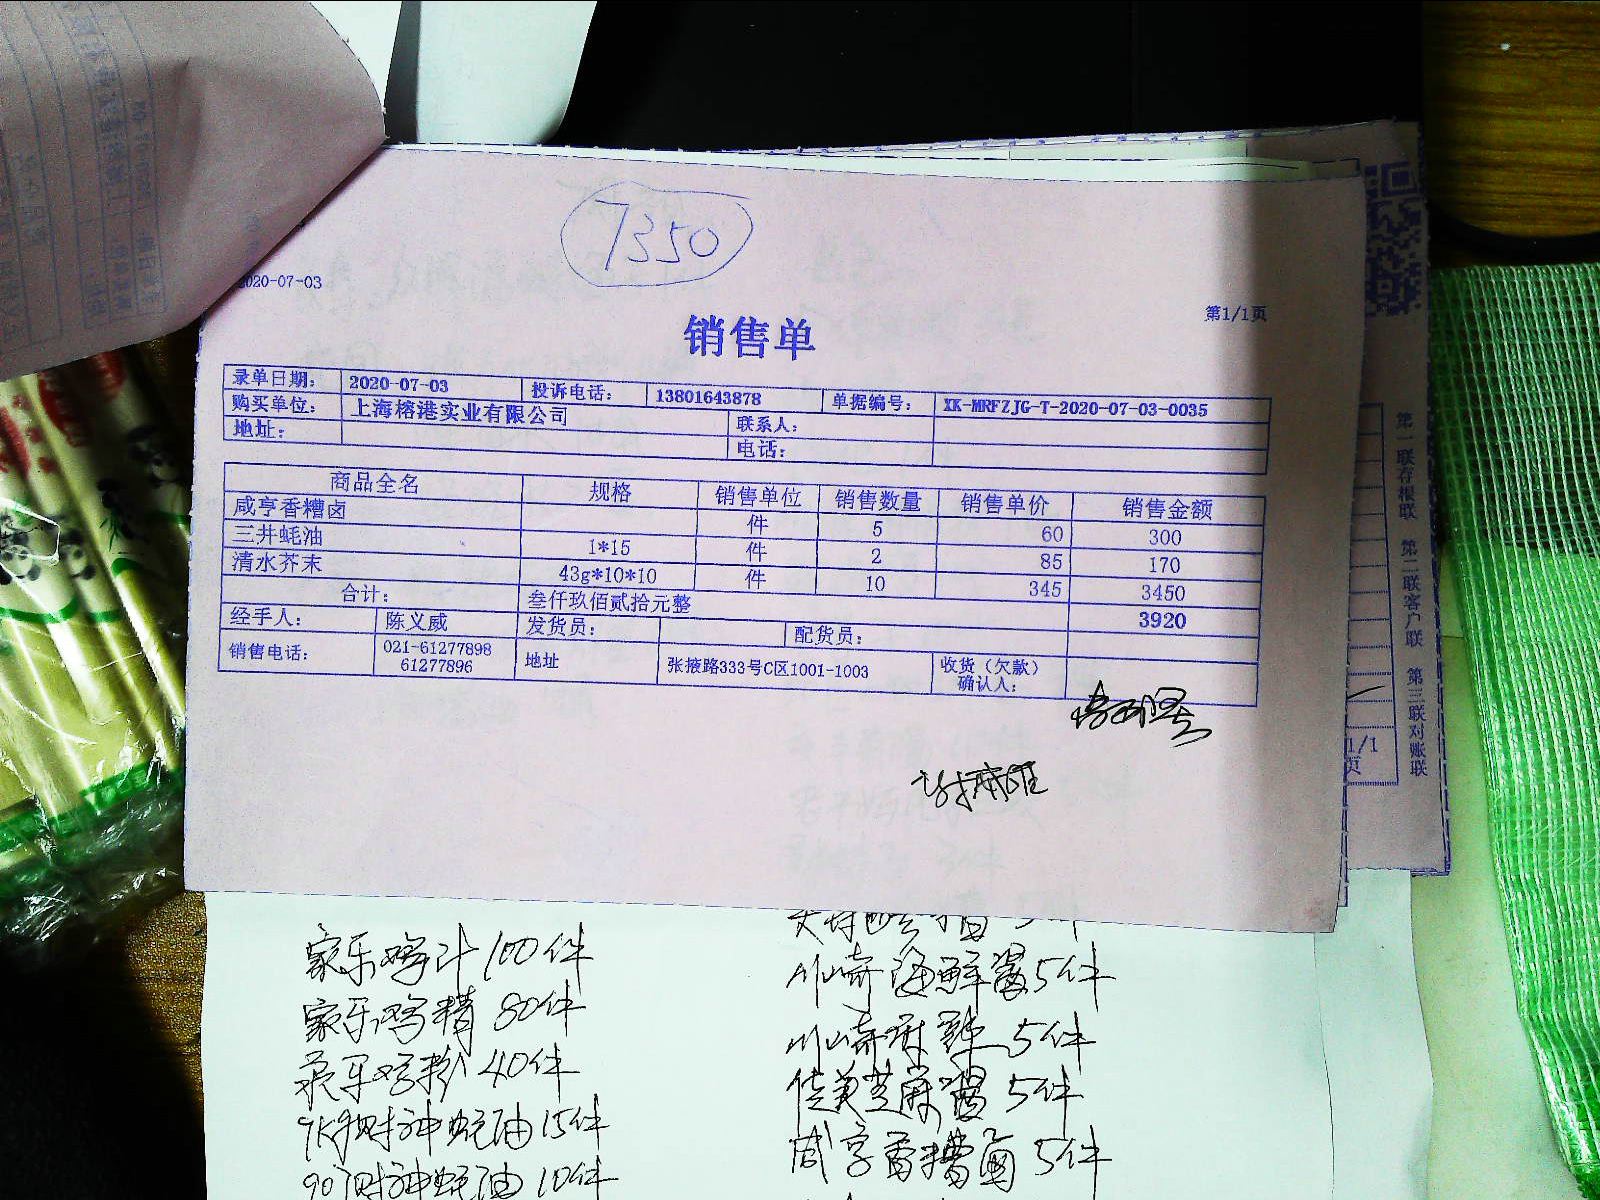 7350
2020-07-03
第1/1页
销售单
录单日期： 2020-07-03 投诉电话： 13801643878 单据编号： XK-MRFZJG-T-2020-07-03-0035
购买单位： 上海榕港实业有限公司 联系人：
地址： 电话：
商品全名 规格 销售单位 销售数量 销售单价 销售金额
咸亨香糟卤 件 5 60 300
三井蚝油 1*15 件 2 85 170
清水芥末 43g*10*10 件 10 345 3450
合计： 叁仟玖佰贰拾元整 3920
经手人： 陈义威 发货员： 配货员：
销售电话： 021-61277898 61277896 地址 张掖路333号C区1001-1003 收货（欠款）确认人：
第一联存根联 第二联客户联 第三联对账联
1/1
页
家乐鸡汁100件
家乐鸡精 80件
家乐鸡粉 40件
财神蚝油15件
财神蚝油10件
川崎海鲜酱5件
川崎 5件
佳美芝麻酱 5件
咸亨香糟卤 5件